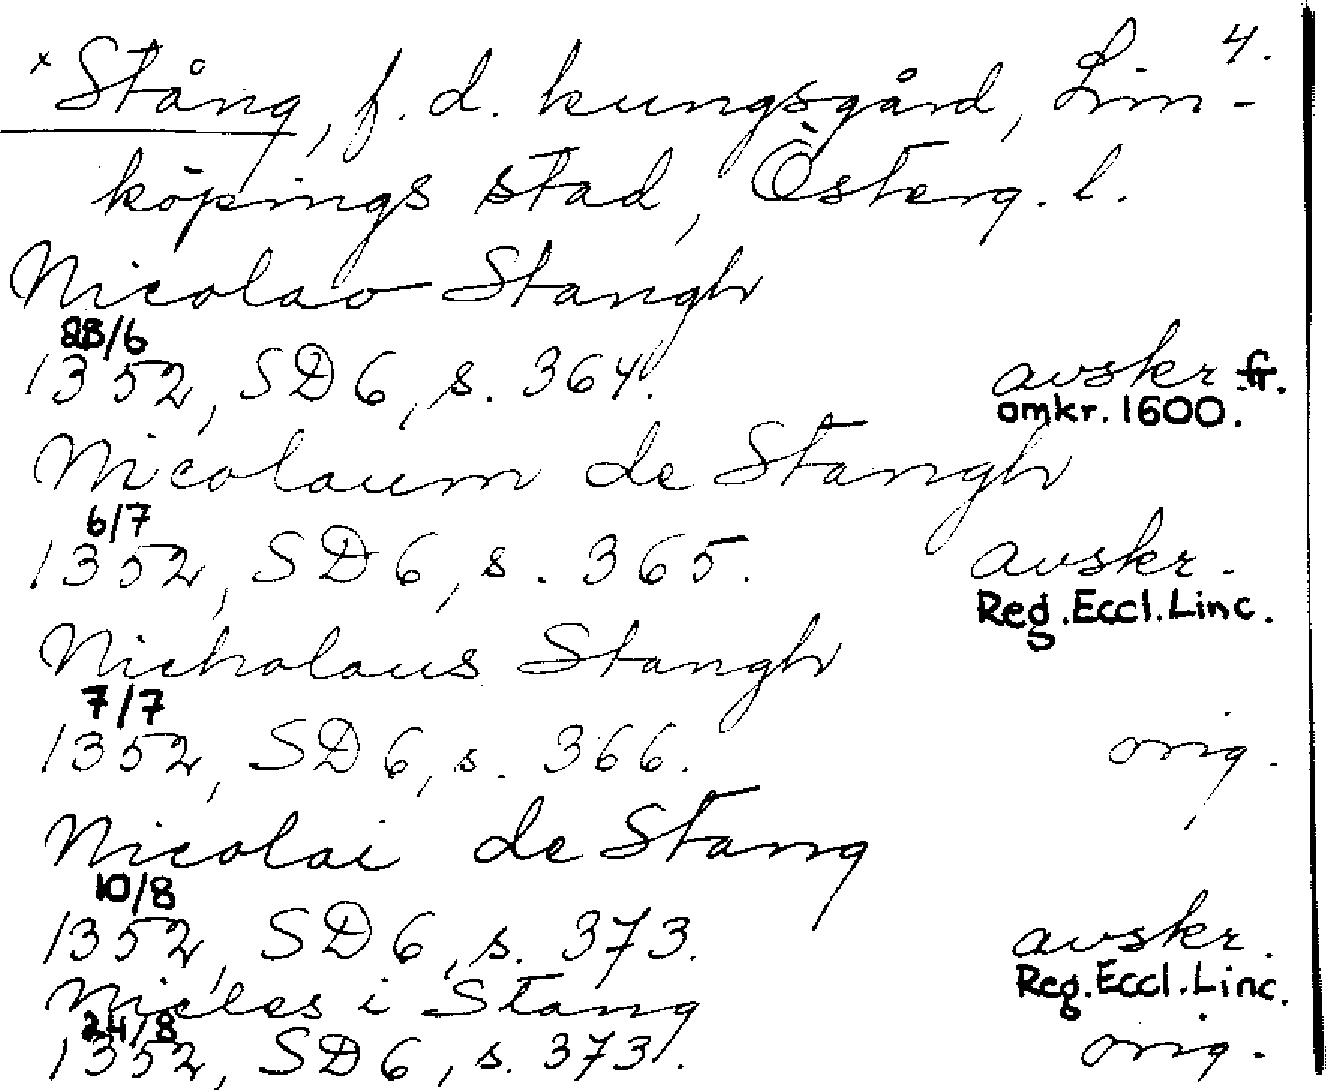 4.
x Stång, f. d. kungsgård, Lin-
köpings stad, Österg. l.
Nicolao Stangh
28/6
1352, SD 6, s. 364. avskr fr.
omkr. 1600.
Nicolaum de Stangh
6/7
1352, SD 6, s. 365. avskr.
Reg. Eccl. Linc.
Nicholaus Stangh
7/7
1352, SD 6, s. 366. orig.
Nicolai de Stang
10/8
1352, SD 6, s. 373. avskr.
Reg. Eccl. Linc.
Nicles i Stang
24/8
1352, SD 6, s. 373. orig.